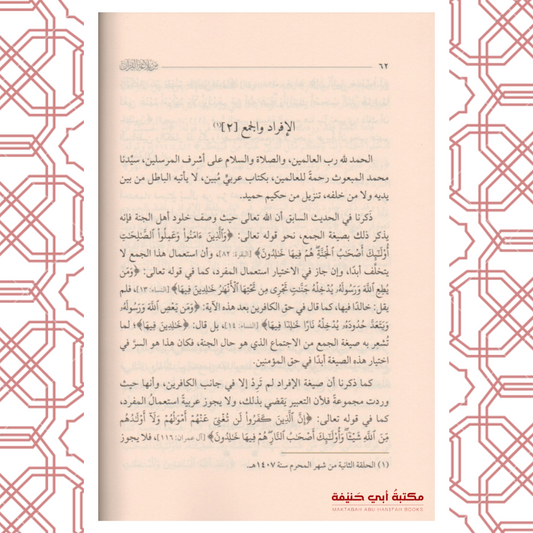 ٦٢
من بلاغة القرآن
الإفراد والجمع [٢](١)
الحمد لله رب العالمين، والصلاة والسلام على أشرف المرسلين، سيّدنا
محمد المبعوث رحمةً للعالمين، بكتاب عربيٍّ مُبين، لا يأتيه الباطل من بين
يديه ولا من خلفه، تنزيل من حكيم حميد.
ذكرنا في الحديث السابق أن الله تعالى حيث وصف خلود أهل الجنة فإنه
يذكر ذلك بصيغة الجمع، نحو قوله تعالى: ﴿وَٱلَّذِينَ ءَامَنُواْ وَعَمِلُواْ ٱلصَّٰلِحَٰتِ
أُوْلَٰٓئِكَ أَصۡحَٰبُ ٱلۡجَنَّةِۖ هُمۡ فِيهَا خَٰلِدُونَ﴾ [البقرة: ٨٢]، وأن استعمال هذا الجمع لا
يتخلَّف أبدًا، وإن جاز في الاختيار استعمال المفرد، كما في قوله تعالى: ﴿وَمَن
يُطِعِ ٱللَّهَ وَرَسُولَهُۥ يُدۡخِلۡهُ جَنَّٰتٖ تَجۡرِي مِن تَحۡتِهَا ٱلۡأَنۡهَٰرُ خَٰلِدِينَ فِيهَا﴾ [النساء: ١٣]، فلم
يقل: خالدًا فيها، كما قال في حق الكافرين بعد هذه الآية: ﴿وَمَن يَعۡصِ ٱللَّهَ وَرَسُولَهُۥ
وَيَتَعَدَّ حُدُودَهُۥ يُدۡخِلۡهُ نَارًا خَٰلِدٗا فِيهَا﴾ [النساء: ١٤]، بل قال: ﴿خَٰلِدِينَ فِيهَا﴾؛ لما
تُشعِر به صيغة الجمع من الاجتماع الذي هو حال الجنة، فكان هذا هو السرَّ في
اختيار هذه الصيغة أبدًا في حق المؤمنين.
كما ذكرنا أن صيغة الإفراد لم تَرِدْ إلا في جانب الكافرين، وأنها حيث
وردت مجموعةً فلأن التعبير يَقضي بذلك، ولا يجوز عربيةً استعمالُ المفرد،
كما في قوله تعالى: ﴿إِنَّ ٱلَّذِينَ كَفَرُواْ لَن تُغۡنِيَ عَنۡهُمۡ أَمۡوَٰلُهُمۡ وَلَآ أَوۡلَٰدُهُم
مِّنَ ٱللَّهِ شَيۡـٔٗاۖ وَأُوْلَٰٓئِكَ أَصۡحَٰبُ ٱلنَّارِۖ هُمۡ فِيهَا خَٰلِدُونَ﴾ [آل عمران: ١١٦]، فلا يجوز
(١) الحلقة الثانية من شهر المحرم سنة ١٤٠٧هـ.
مكتبة أبي حنيفة
MAKTABAH ABU HANEFAH BOOKS